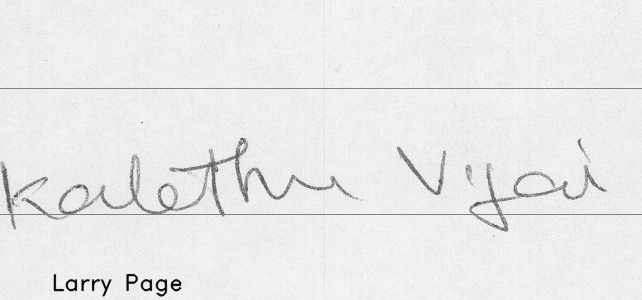 Kalethu Vijai
Larry Page